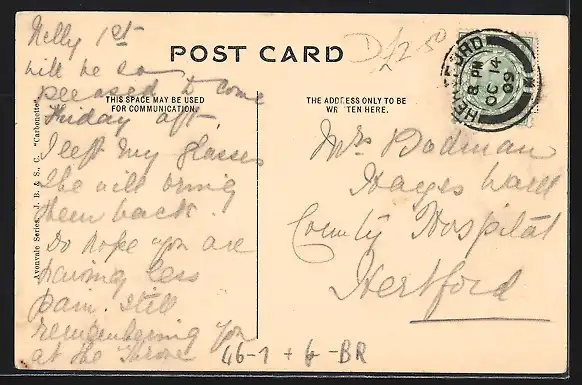 POST CARD
D/ 2.50
HERTFORD
8 PM
OC 14
09
THIS SPACE MAY BE USED
FOR COMMUNICATION.
THE ADDRESS ONLY TO BE
WRITTEN HERE.
Avonvale Series, J. B. & S., C. "Carbonette"
Nelly 1st
will be so
pleased to come
Friday aft.
I left my glasses
She will bring
them back.
Do hope you are
having less
pain. Still
remembering you
at the Throne
Mrs Bodman
Hages Ward
County Hospital
Hertford
46-1 + 6 -BR